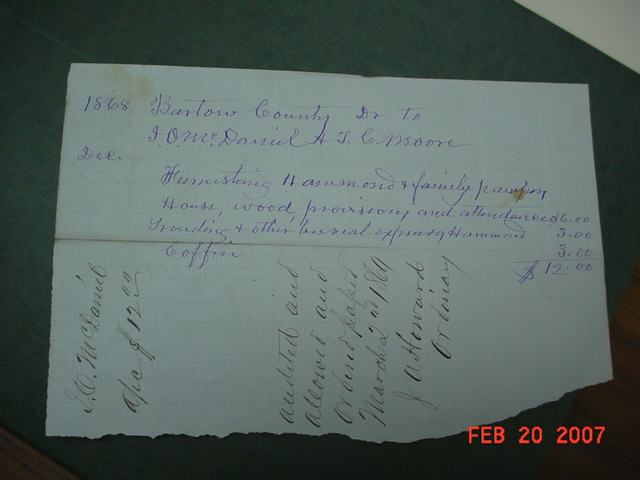 1868 Bartow County Dr to
I. O. McDaniel & T. C. Moore
Dec.
Furnishing Hammond & family
House, wood, provisions and attendance $6.00
& other burial expenses Hammond 3.00
Coffin 3.00
$12.00
I. O. McDaniel
a/c $12.00
audited and
allowed and
Ordered paid
March 2nd 1869
J A Howard
Ordinary
FEB 20 2007